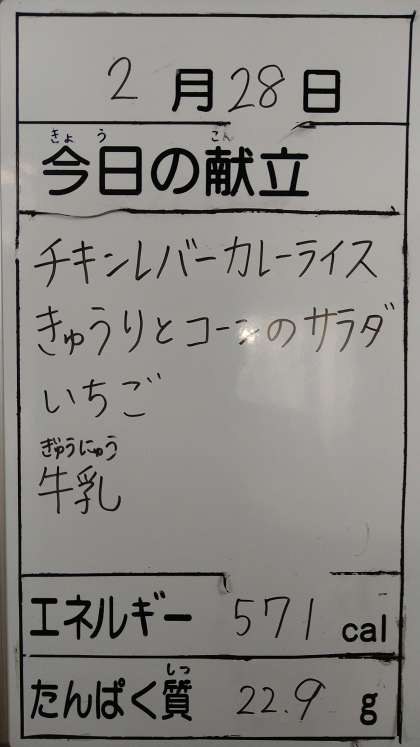 2月28日
きょう こん
今日の献立
チキンレバーカレーライス
きゅうりとコーンのサラダ
いちご
ぎゅうにゅう
牛乳
エネルギー 571 cal
しつ
たんぱく質 22.9 g